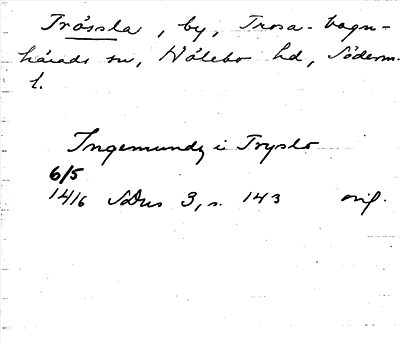 Trössla, by, Trosa-Vagn-
härads sn, Hölebo hd, Söderm.
l.
Ingemundz i Tryslo
6/5
1416 SDns 3, s. 143 orig.